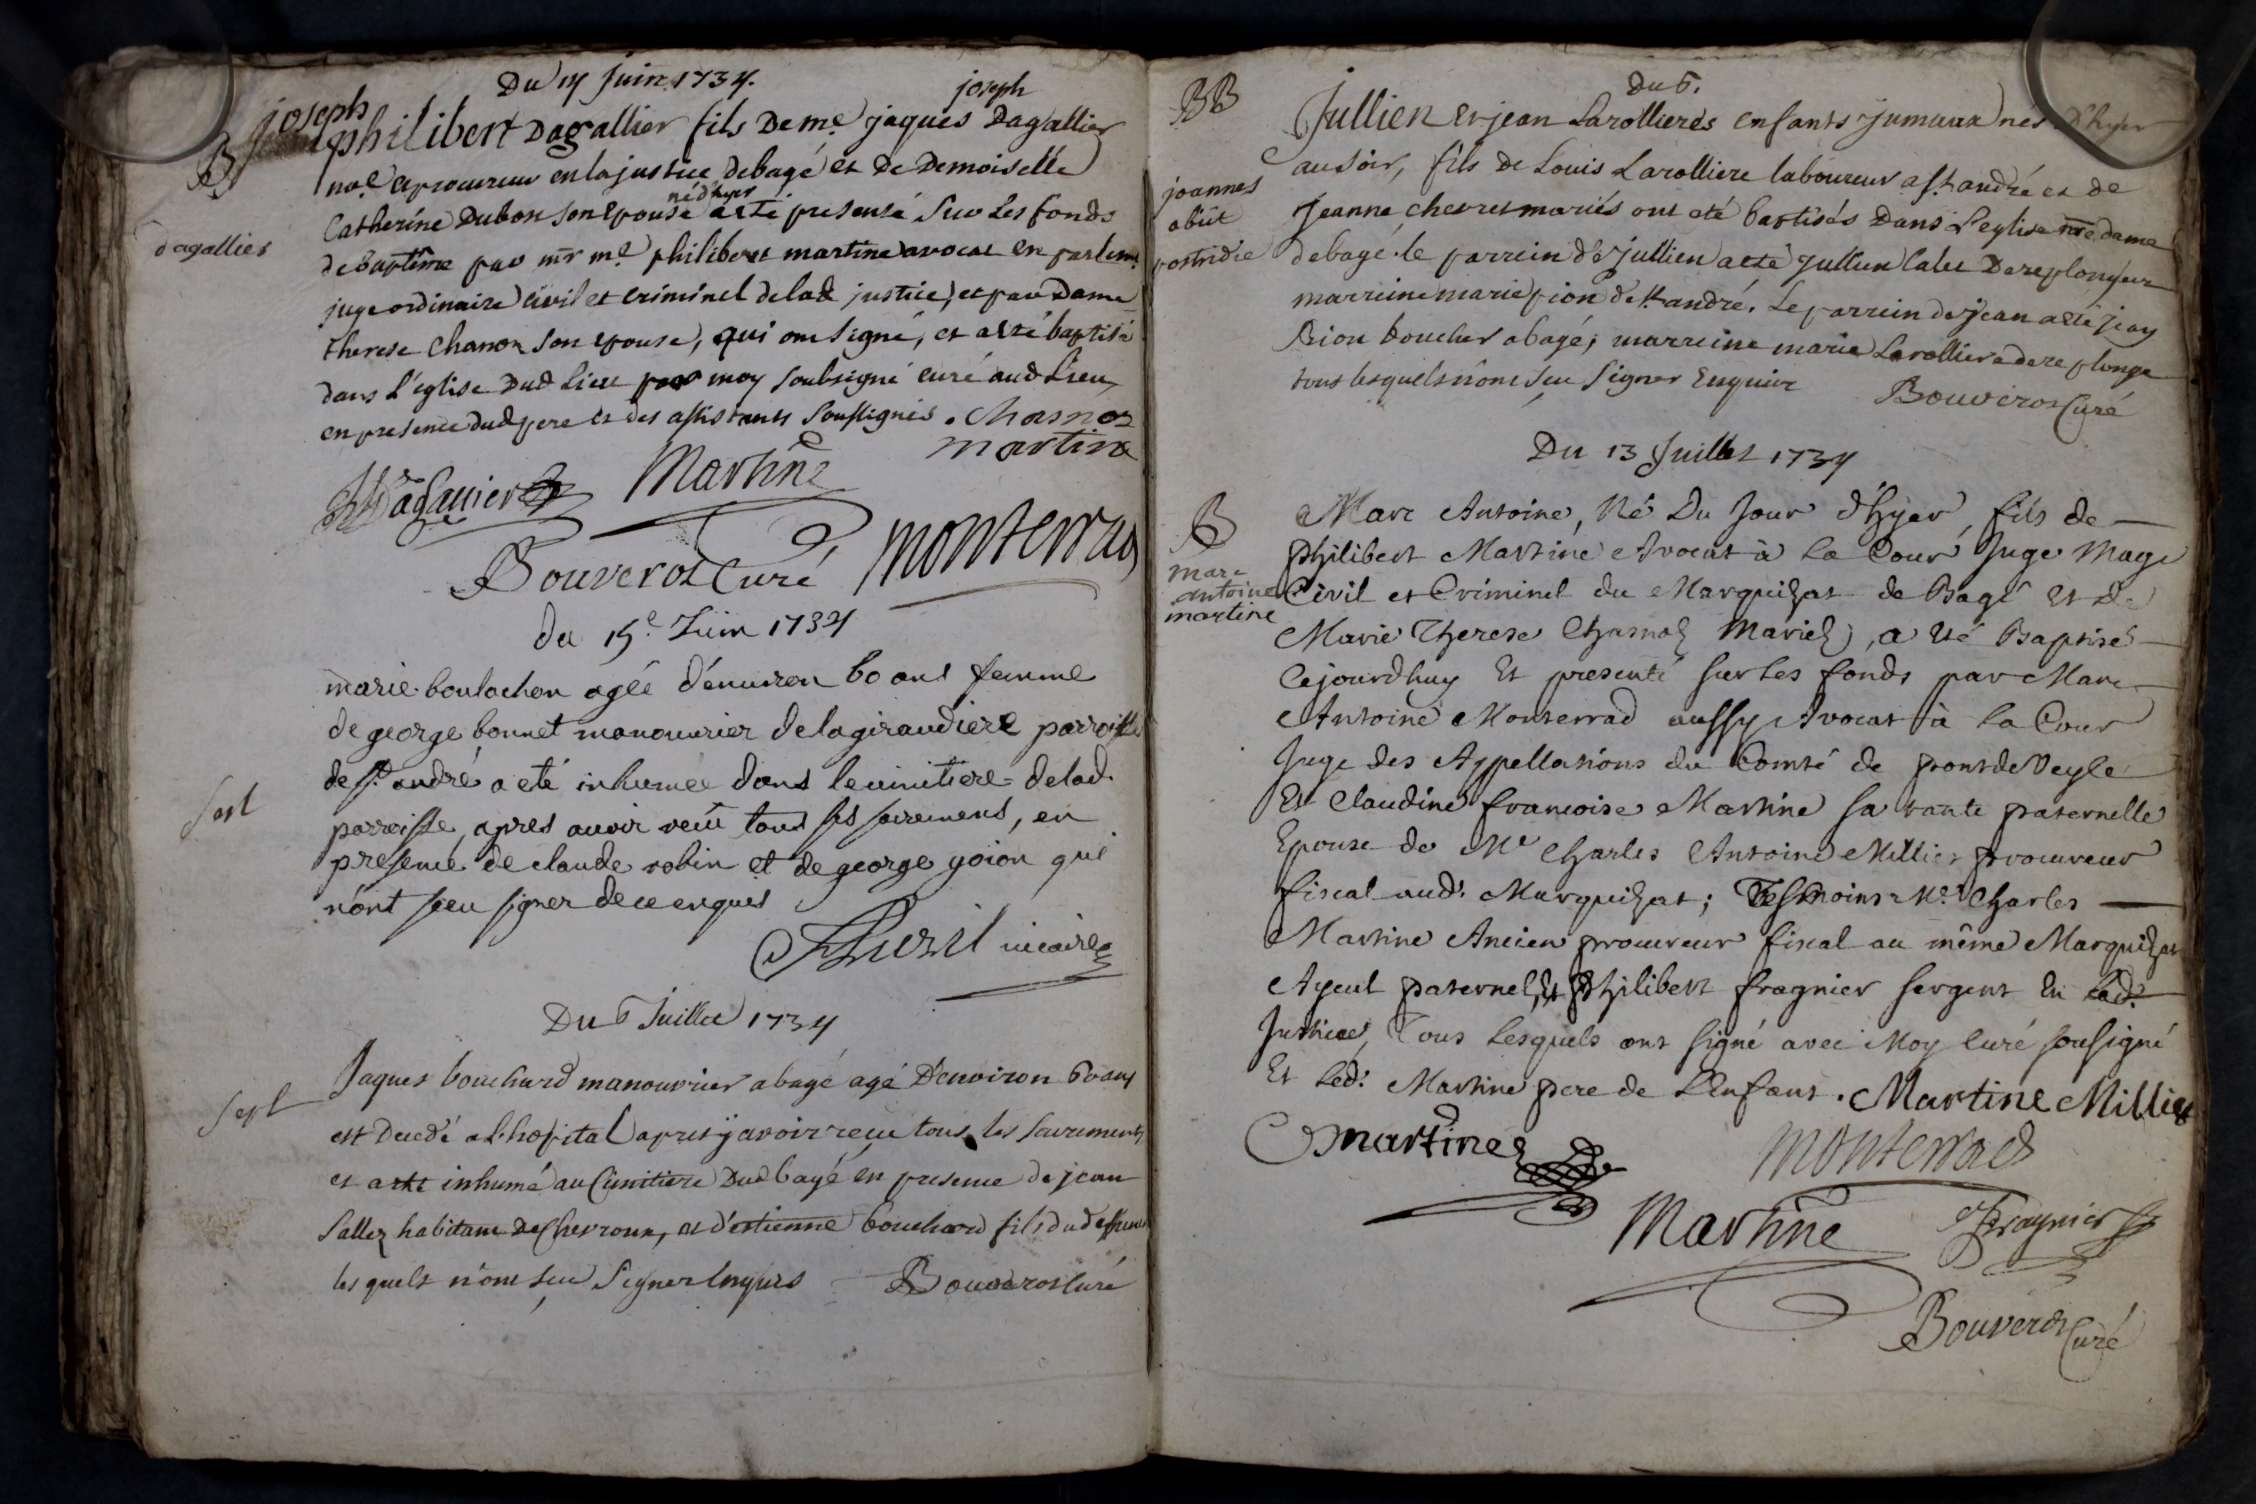 Du 14 Juin 1734.
joseph joseph
B philibert Dagallier fils De me jaques Dagallier
nore et procureur en la justice de bagé et De Demoiselle
né d'hyer
Catherine Dubost son epouse a esté presenté sur Les fonds
dagallier
de baptême par mr me philibert martine avocat en parlemt
juge ordinaire civil et criminel de lad justice, et par Dame
therese chanoz son epouse, qui ont signé, et a esté baptisé
dans L'eglise Dud Lieu par moy soubsigné curé aud Lieu,
en presence dud pere et des assistants soussignés. Chasnoz
martine
Dagallier Martine
Bouverot Curé Monterrad
du 15e Juin 1734
marie boulachon agée d'environ 60 ans femme
de george bonnet manouvrier de la giraudiere parroisse
de st andré a eté inhumée dans le cimitiere de lad.
parroisse, apres avoir reçu tous ses sacremens, en
presence de claude robin et de george goion qui
n'ont sceu signer de ce enquis
vicaire
Du 6 Juillet 1734
Jaques bouchard manouvrier a bagé agé D'environ 60 ans
sepl
est decedé a L'hopital apres y avoir reçu tous les sacrements
et a esté inhumé au Cimitiere Dud bagé en presence de jean
Sallez habitant De Chevroux, et d'estienne bouchard fils dud deffunt
lesquels n'ont sceu signer Enquis Bouverot Curé
BB
Du 6.
Jullien et jean Larollieres enfants jumeaux nés D'hyer
au soir, fils de Louis Larolliere laboureur a st andré et de
joannes
obiit
postridie
Jeanne chevret mariés ont eté baptisés Dans L'eglise nre dame
de bagé. le parrein de Jullien a esté Jullien Calet De replonge
marreine marie pion de st andré. Le parrein de jean a esté jean
Pion boucher a bagé, marreine marie Larolliere de replonge
tous lesquels n'ont sceu signer Enquis Bouverot Curé
Du 13 Juillet 1734
B
marc
antoine
martine
Marc Antoine, Né Du Jour d'Hyer, fils de
Philibert Martine Avocat à la Cour Juge Mage
Civil et Criminel du Marquizat de Bagé Et de
Marie Therese Chasnoz Mariez, a eté Baptisé
Cejourdhuy Et presenté sur les fonds par Marc
Antoine Monterrad aussy Avocat à la Cour
Juge des Appellations du Comté de pontdeVeyle
Et Claudine francoise Martine sa tante paternelle
Epouse de Me Charles Antoine Millier procureur
fiscal aud. Marquizat; Tesmoins Me Charles
Martine Ancien procureur fiscal au même Marquizat
Ayeul paternel, Et Philibert fragnier sergent En lad.
Justice, Tous Lesquels ont signé avec Moy Curé sousigné
Et led. Martine pere de L'Enfant. Martine Millier
martine Monterrad
Martine fragnier
Bouverot Curé